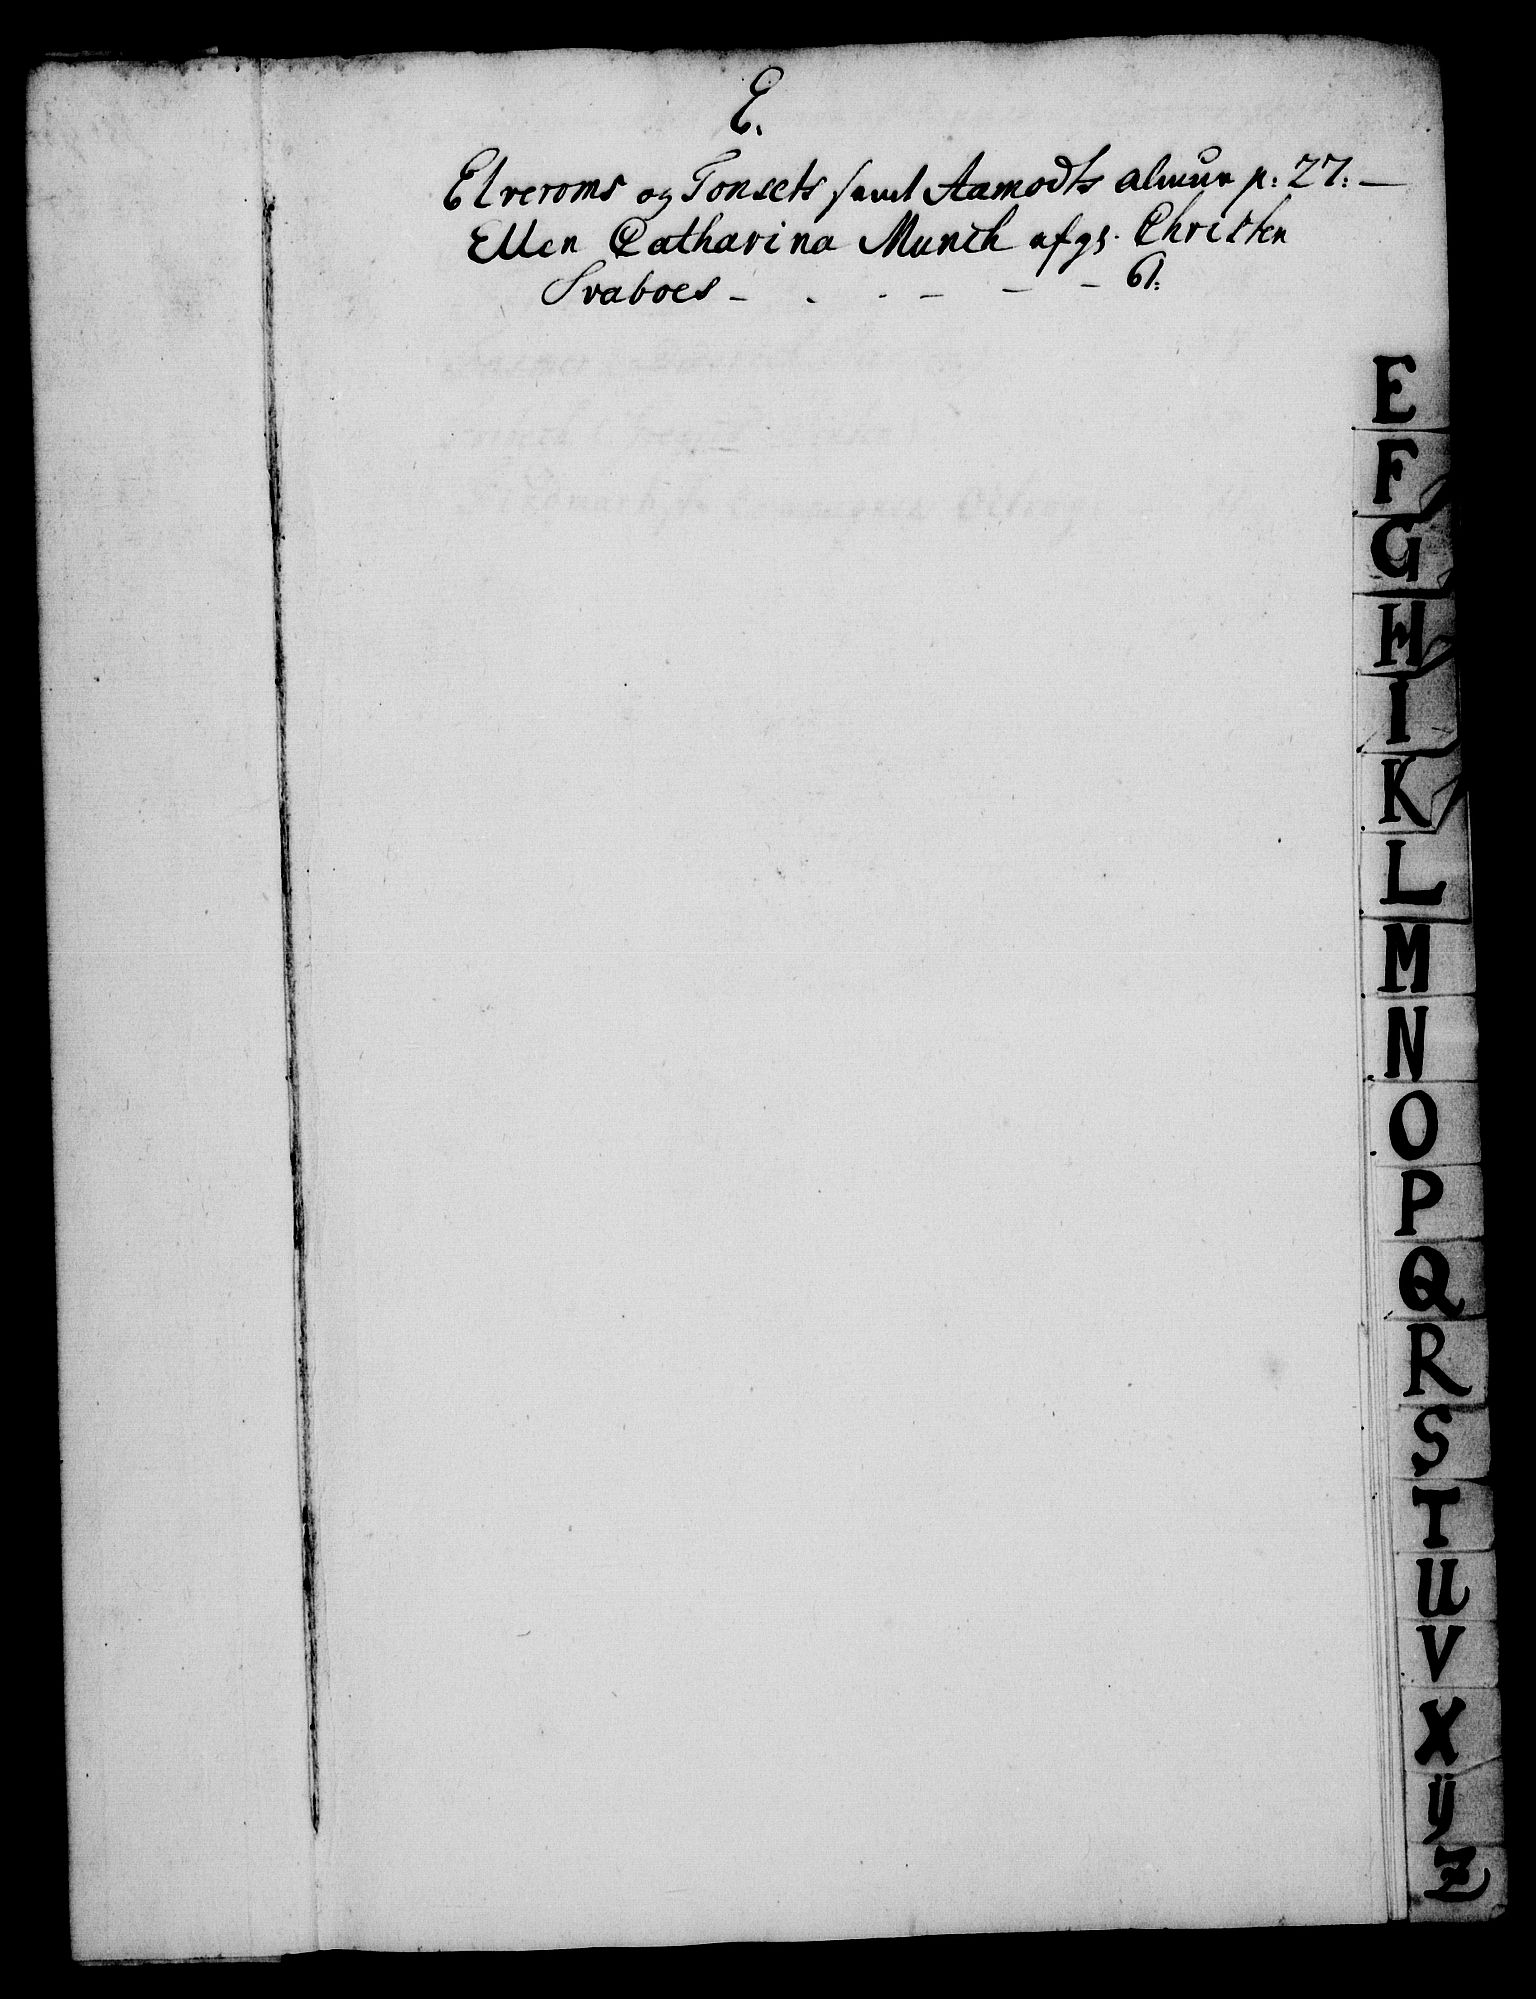 E.
Elveroms og Tonsets samt Aamodts almue p: 27: —
Ellen Catharina Munch afgs. Christen
Svaboes - . . - - - 61:
E
F
G
H
I
K
L
M
N
O
P
Q
R
S
T
U
V
X
ÿ
Z